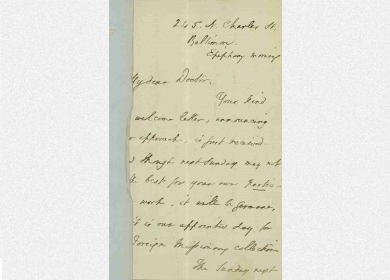 245. N. Charles St.
Baltimore.
Epiphany morning
My dear Doctor,
Your kind
welcome letter, announcing
approach, is just received
though next Sunday may not
the best for your own
work, it will be germane,
it is our day for
Foreign Missionary collection
The Sunday next